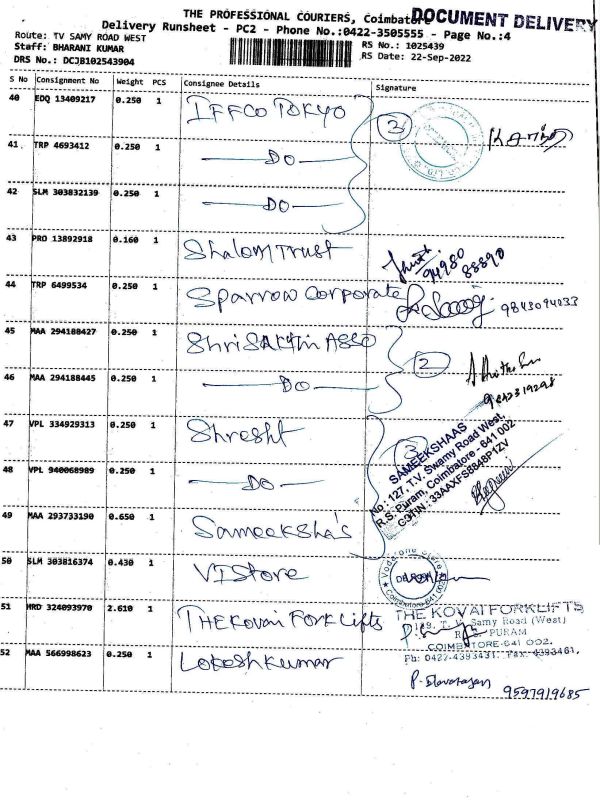 THE PROFESSIONAL COURIERS, Coimbatore DOCUMENT DELIVERY
Delivery Runsheet - PC2 - Phone No.:0422-3505555 - Page No.:4
Route: TV SAMY ROAD WEST RS No.: 1025439
Staff: BHARANI KUMAR RS Date: 22-Sep-2022
DRS No.: DCJB102543904
S No Consignment No Weight PCS Consignee Details Signature
40 EDQ 13409217 0.250 1 IFFCO TOKYO 3
41 TRP 4693412 0.250 1 DO
42 SLM 303832139 0.250 1 DO
43 PRD 13892918 0.160 1 Shalom Trust 94980 88890
44 TRP 6499534 0.250 1 Sparrow Corporate 9843094033
45 MAA 294188427 0.250 1 Shri Sakthi Asso 2
46 MAA 294188445 0.250 1 DO 9842319298
47 VPL 334929313 0.250 1 Shresht 3
48 VPL 940068989 0.250 1 DO
49 MAA 293733190 0.650 1 Sameeksha's
SAMEEKSHAAS
No: 127, T.V. Swamy Road West,
R.S. Puram, Coimbatore - 641 002
GSTIN: 33AAXFS8848P1ZV
50 SLM 303816374 0.430 1 VI Store
Vodafone Store
Coimbatore-641 002
51 HRD 324093970 2.610 1 THE Kovai Fork Lifts
THE KOVAI FORKLIFTS
119, T. V. Samy Road (West)
R.S. PURAM
COIMBATORE-641 002.
Ph: 0422-4393431, Fax: 4393461,
52 MAA 566998623 0.250 1 Lokesh kumar
9597919685